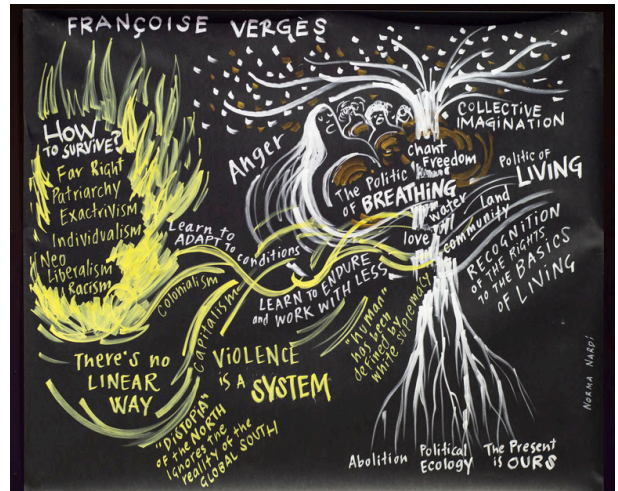 FRANÇOISE VERGÈS
HOW
TO SURVIVE?
Far Right
Patriarchy
Exactrivism
Individualism
Neo
Liberalism
Racism
There's no
LINEAR
WAY
Colonialism
Capitalism
Learn to
ADAPT to conditions
LEARN to ENDURE
and WORK WITH LESS
VIOLENCE
is A SYSTEM
"DISTOPIA"
OF the NORTH
Ignores the
reality of the
GLOBAL SOUTH
"HUMAN"
has been
defined by
white supremacy
Anger
The Politic
of BREATHING
Chant
Freedom
COLLECTIVE
IMAGINATION
Politic of
LIVING
water
land
love
community
RECOGNITION
OF THE RIGHTS
TO THE BASICS
OF LIVING
Abolition
Political
Ecology
The Present
is OURS
NORMA NARDI